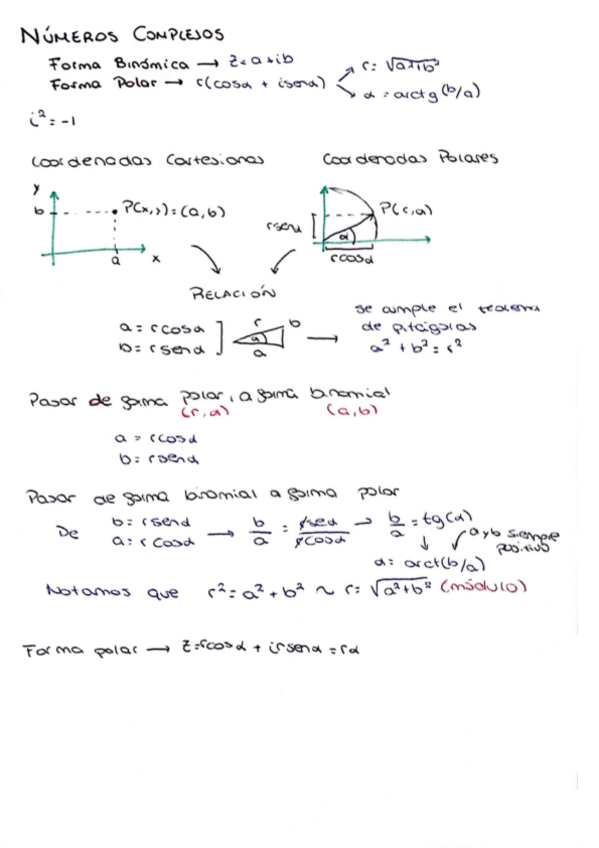 NÚMEROS COMPLEJOS
Forma Binómica → z = a + ib
Forma Polar → r(cosα + isenα)
r = √a²+b²
α = arctg(b/a)
i² = -1
Coordenadas Cartesianas
Coordenadas Polares
y
b
P(x,y) = (a,b)
a
x
P(r,α)
rsenα
α
rcosα
RELACIÓN
a = rcosα
b = rsenα
r
b
α
a
→ se cumple el teorema
de pitágoras
a² + b² = r²
Pasar de forma polar, a forma binomial
(r,α)
(a,b)
a = rcosα
b = rsenα
Pasar de forma binomial a forma polar
De
b = rsenα
a = rcosα
→ b/a = rsenα/rcosα → b/a = tg(α)
a y b siempre
positivo
α = arct(b/a)
Notamos que r² = a² + b² ~ r = √a²+b² (módulo)
Forma polar → z = rcosα + irsenα = rα